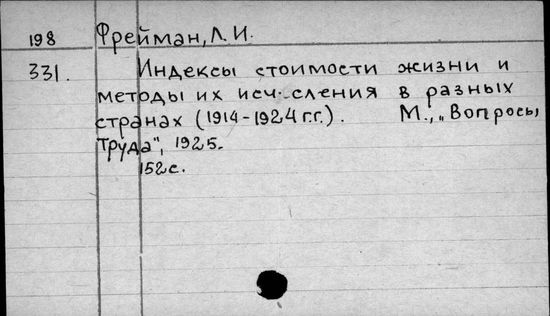 198 Фрейман, Л. И.
331. Индексы стоимости жизни и
методы их исчисления в разных
странах (1914-1924 г.г.). М., „Вопросы
Труда", 1925.
152 с.